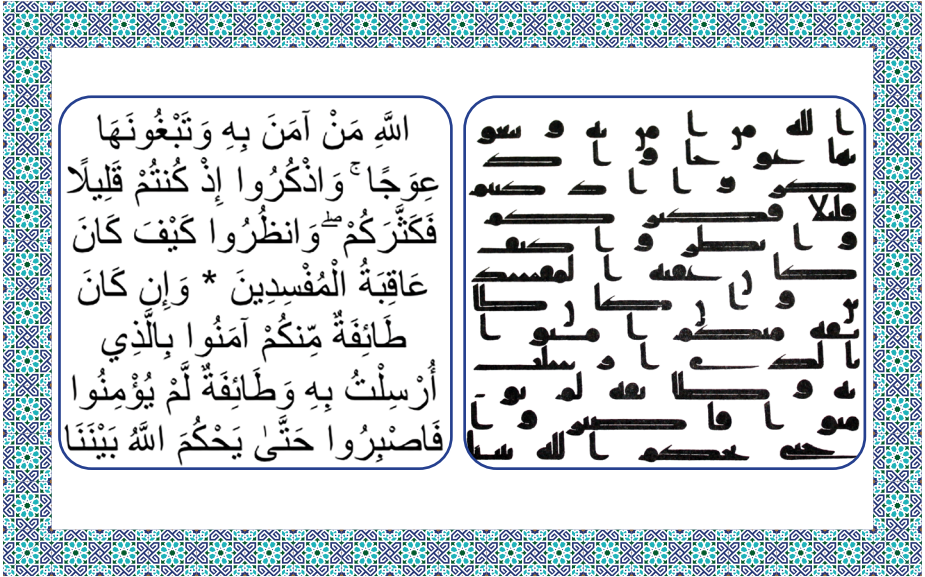 الله من امن به وتبغو
نها عوجا واذ
كروا اذ كنتم
قليلا فكثركم
وانظروا كيف
كان عقبه المفسد
ين وان كان طا
ئفه منكم امنوا
بالذي ارسلت
به وطائفه لم يو
منوا فاصبروا
حتى يحكم الله بينا
اللَّهِ مَنْ آمَنَ بِهِ وَتَبْغُونَهَا
عِوَجًا ۚ وَاذْكُرُوا إِذْ كُنتُمْ قَلِيلًا
فَكَثَّرَكُمْ ۖ وَانظُرُوا كَيْفَ كَانَ
عَاقِبَةُ الْمُفْسِدِينَ * وَإِن كَانَ
طَائِفَةٌ مِّنكُمْ آمَنُوا بِالَّذِي
أُرْسِلْتُ بِهِ وَطَائِفَةٌ لَّمْ يُؤْمِنُوا
فَاصْبِرُوا حَتَّىٰ يَحْكُمَ اللَّهُ بَيْنَنَا